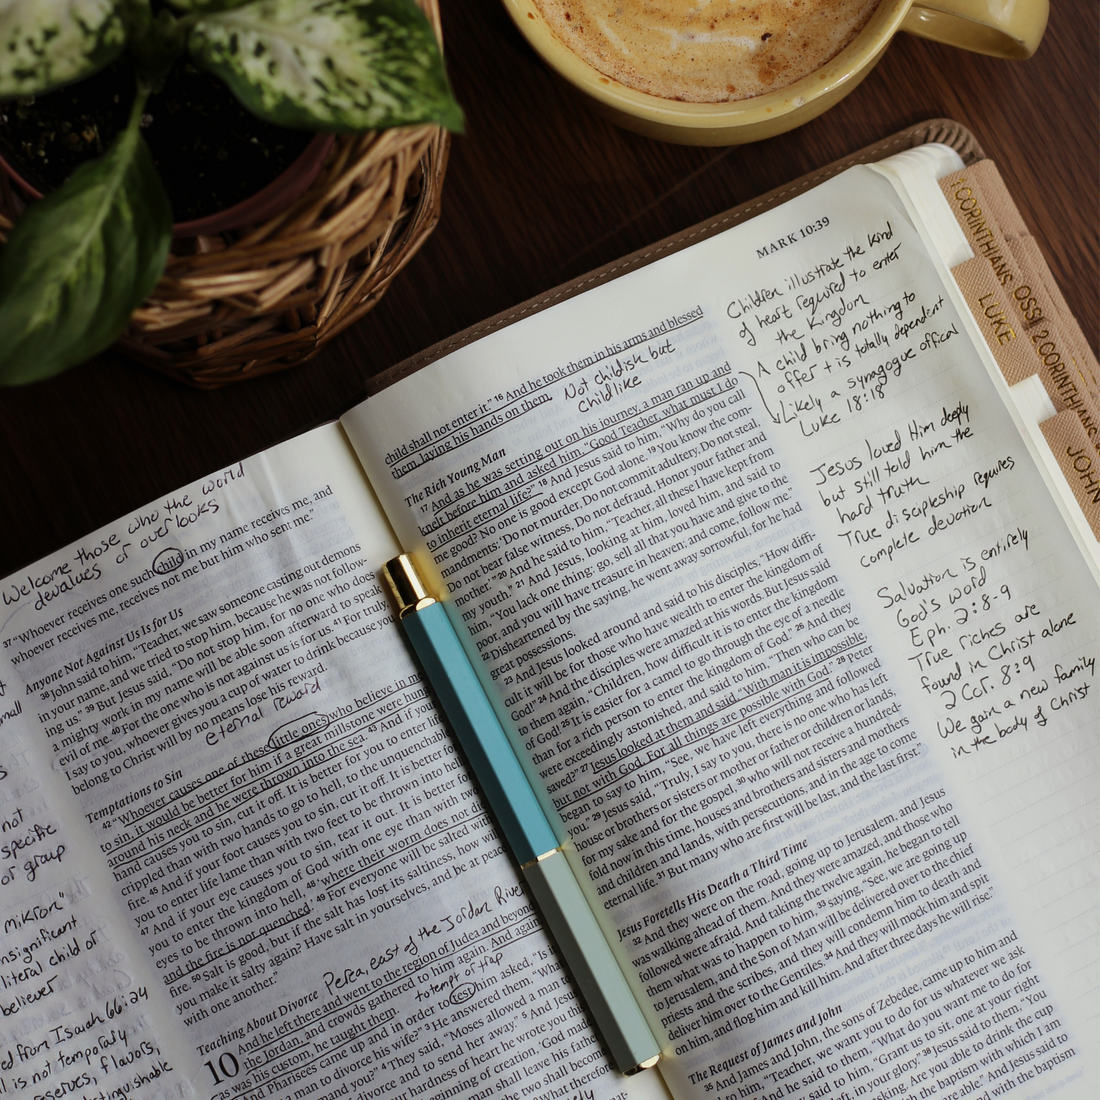 MARK 10:39
1 CORINTHIANS
2 CORINTHIANS
LUKE
JOHN
Welcome those who the world
devalues or overlooks
37 "Whoever receives one such child in my name receives me, and
whoever receives me, receives not me but him who sent me."
Anyone Not Against Us Is for Us
38 John said to him, "Teacher, we saw someone casting out demons
in your name, and we tried to stop him, because he was not follow-
ing us." 39 But Jesus said, "Do not stop him, for no one who does
a mighty work in my name will be able soon afterward to speak
evil of me. 40 For the one who is not against us is for us. 41 For truly,
I say to you, whoever gives you a cup of water to drink because you
belong to Christ will by no means lose his reward.
eternal reward
Temptations to Sin
42 "Whoever causes one of these little ones who believe in me
to sin, it would be better for him if a great millstone were hung
around his neck and he were thrown into the sea. 43 And if your
hand causes you to sin, cut it off. It is better for you to enter life
crippled than with two hands to go to hell, to the unquenchable
fire. 45 And if your foot causes you to sin, cut it off. It is better for
you to enter life lame than with two feet to be thrown into hell.
47 And if your eye causes you to sin, tear it out. It is better for
you to enter the kingdom of God with one eye than with two
eyes to be thrown into hell, 48 'where their worm does not die
and the fire is not quenched.' 49 For everyone will be salted with
fire. 50 Salt is good, but if the salt has lost its saltiness, how will
you make it salty again? Have salt in yourselves, and be at peace
with one another."
Perea, east of the Jordan River
Teaching About Divorce
10 And he left there and went to the region of Judea and beyond
the Jordan, and crowds gathered to him again. And again,
as was his custom, he taught them.
to tempt or trap
And Pharisees came up and in order to test him asked, "Is
a man to divorce his wife?" 3 He answered them, "What
4 They said, "Moses allowed a man
and to send her away." 5 And Jesus
hardness of heart he wrote you this
beginning of creation, 'God made
a man shall leave his father
the two shall become
not
specific
or group
mikron"
insignificant
literal child or
believer
from Isaiah 66:24
is not temporary
preserves, flavors,
child shall not enter it." 16 And he took them in his arms and blessed
them, laying his hands on them.
Not childish but
childlike
The Rich Young Man
17 And as he was setting out on his journey, a man ran up and
knelt before him and asked him, "Good Teacher, what must I do
to inherit eternal life?" 18 And Jesus said to him, "Why do you call
me good? No one is good except God alone. 19 You know the com-
mandments: 'Do not murder, Do not commit adultery, Do not steal,
Do not bear false witness, Do not defraud, Honor your father and
mother.'" 20 And he said to him, "Teacher, all these I have kept from
my youth." 21 And Jesus, looking at him, loved him, and said to
him, "You lack one thing: go, sell all that you have and give to the
poor, and you will have treasure in heaven; and come, follow me."
22 Disheartened by the saying, he went away sorrowful, for he had
great possessions.
23 And Jesus looked around and said to his disciples, "How diffi-
cult it will be for those who have wealth to enter the kingdom of
God!" 24 And the disciples were amazed at his words. But Jesus said
to them again, "Children, how difficult it is to enter the kingdom
of God! 25 It is easier for a camel to go through the eye of a needle
than for a rich person to enter the kingdom of God." 26 And they
were exceedingly astonished, and said to him, "Then who can be
saved?" 27 Jesus looked at them and said, "With man it is impossible,
but not with God. For all things are possible with God." 28 Peter
began to say to him, "See, we have left everything and followed
you." 29 Jesus said, "Truly, I say to you, there is no one who has left
house or brothers or sisters or mother or father or children or lands,
for my sake and for the gospel, 30 who will not receive a hundred-
fold now in this time, houses and brothers and sisters and mothers
and children and lands, with persecutions, and in the age to come
eternal life. 31 But many who are first will be last, and the last first."
Jesus Foretells His Death a Third Time
32 And they were on the road, going up to Jerusalem, and Jesus
was walking ahead of them. And they were amazed, and those who
followed were afraid. And taking the twelve again, he began to tell
them what was to happen to him, 33 saying, "See, we are going up
to Jerusalem, and the Son of Man will be delivered over to the chief
priests and the scribes, and they will condemn him to death and
deliver him over to the Gentiles. 34 And they will mock him and spit
on him, and flog him and kill him. And after three days he will rise."
The Request of James and John
35 And James and John, the sons of Zebedee, came up to him and
said to him, "Teacher, we want you to do for us whatever we ask
"What do you want me to do for
"Grant us to sit, one at your right
left, in your glory." 38 Jesus said to them, "You
Are you able to drink the cup
with the baptism with which I am
And Jesus said to
with the baptism
Children illustrate the kind
of heart required to enter
the kingdom
A child brings nothing to
offer + is totally dependent
Likely a synagogue official
Luke 18:18
Jesus loved Him deeply
but still told him the
hard truth
True discipleship requires
complete devotion
Salvation is entirely
God's word
Eph. 2:8-9
True riches are
found in Christ alone
2 Cor. 8:9
We gain a new family
in the body of Christ